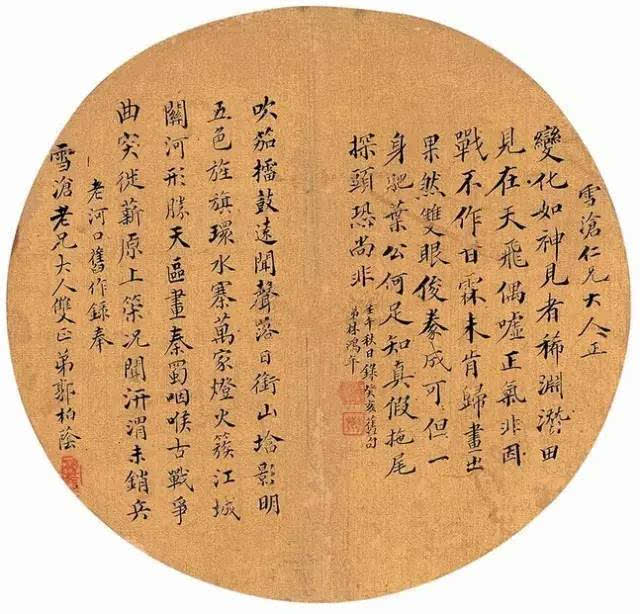 雪滄仁兄大人正
變化如神見者稀淵潛田
見在天飛偶噓正氣非因
戰不作甘霖未肯歸畫出
果然雙眼俊豢成可但一
身肥葉公何足知真假拖尾
探頭恐尚非
壬午秋日錄癸亥舊句
弟林鴻年
吹笳擂鼓遠聞聲落日銜山堵影明
五色旌旗環水寨萬家燈火簇江城
關河形勝天區畫秦蜀咽喉古戰爭
曲突徙薪原上策況聞汧渭未銷兵
老河口舊作錄奉
雪滄老兄大人雙正弟郭柏蔭